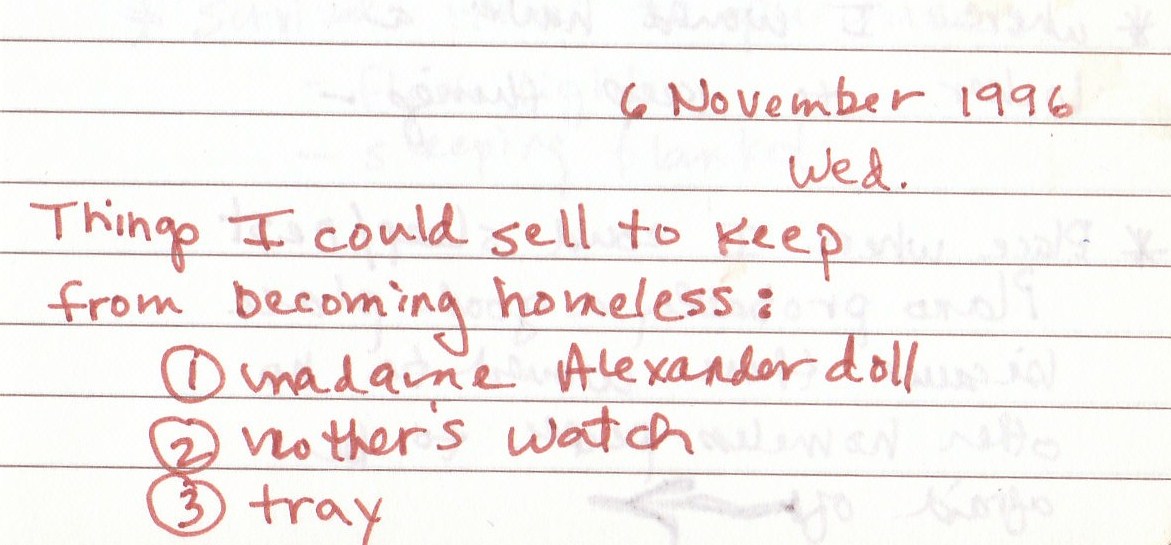 6 November 1996
Wed.
Things I could sell to keep
from becoming homeless:
① madame Alexander doll
② mother's watch
③ tray